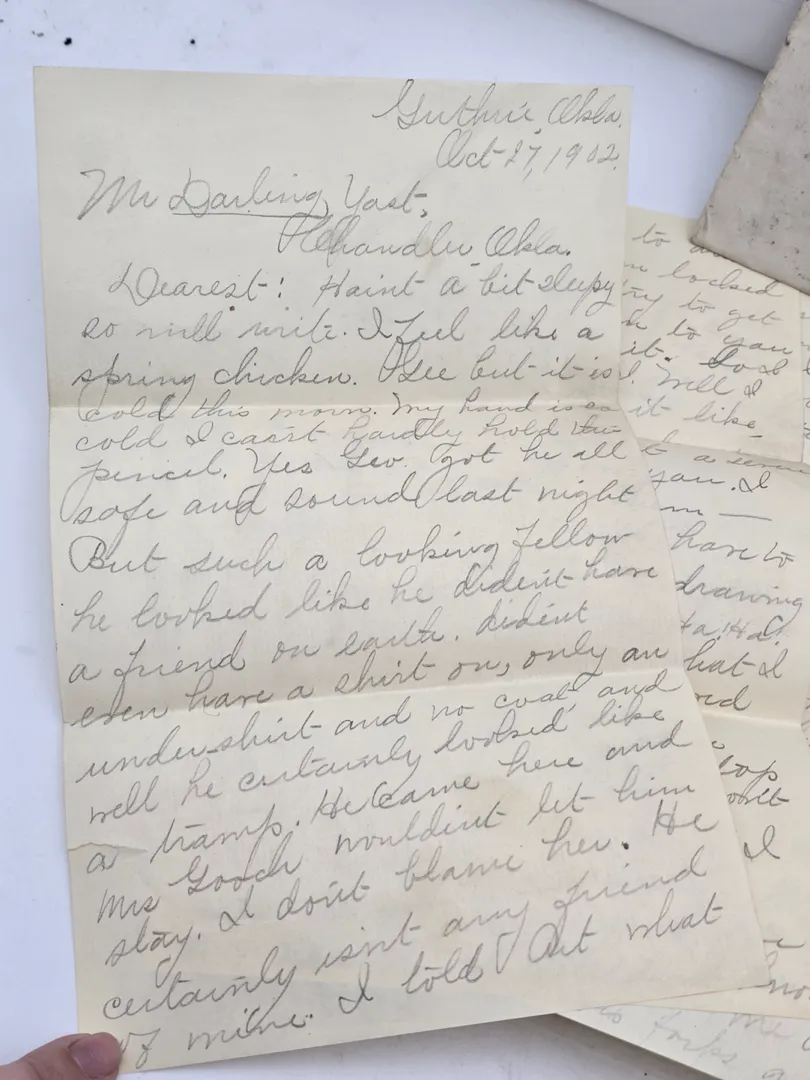 Guthrie, Okla.
Oct 27, 1902.
Mr Darling Yast,
Chandler Okla.
Dearest: Haint a bit sleepy
so will write. I feel like a
spring chicken. Gee but it is
cold this morn. My hand is so
cold I can't hardly hold the
pencil. Yes Geo. got he all
safe and sound last night
But such a looking fellow
he looked like he dident have
a friend on earth. dident
even have a shirt on, only an
undershirt and no coat, and
well he certainly looked like
a tramp. He came here and
Mrs Gooch wouldint let him
stay. I don't blame her. He
certainly isn't any friend
of mine. I told Art what
to
locked
try to get
to you
it.
Well I
it like
you. I
have to
drawing
Ha! Ha!
hat I
I
me
forks